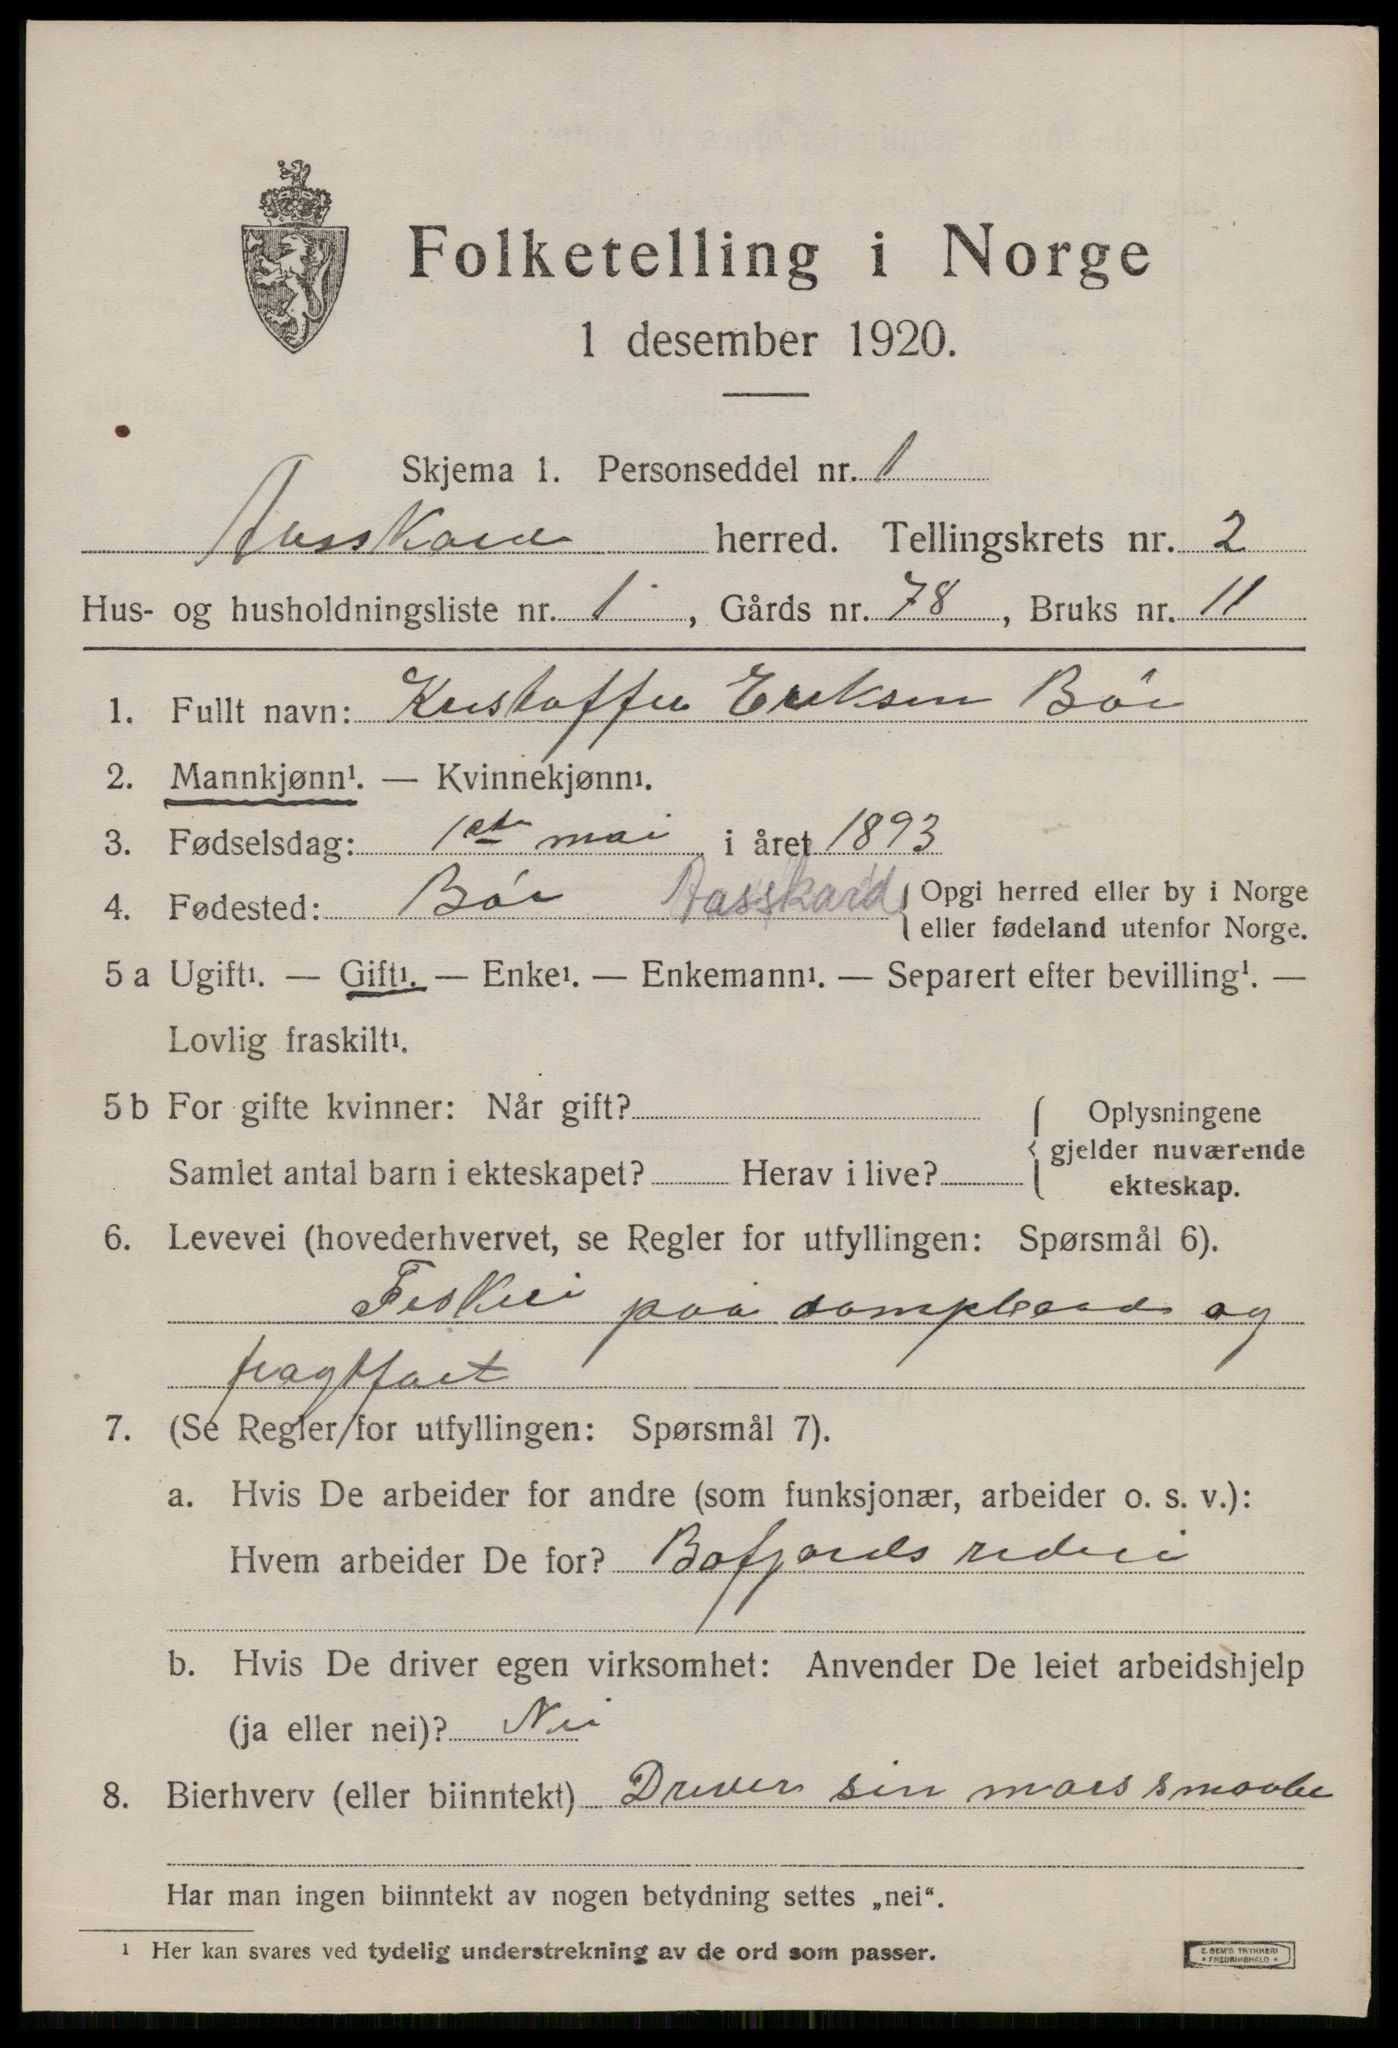 Folketelling i Norge
1 desember 1920.
Skjema 1. Personseddel nr. 1
Aasskard herred. Tellingskrets nr. 2
Hus- og husholdningsliste nr. 1, Gårds nr. 78, Bruks nr. 11
1. Fullt navn: Kristoffer Eriksen Bøe
2. Mannkjønn¹. — Kvinnekjønn¹.
3. Fødselsdag: 1ste mai i året 1893
4. Fødested: Bøe Aasskard { Opgi herred eller by i Norge
eller fødeland utenfor Norge.
5 a Ugift¹. — Gift¹. — Enke¹. — Enkemann¹. — Separert efter bevilling¹. —
Lovlig fraskilt¹.
5 b For gifte kvinner: Når gift?
Oplysningene
gjelder nuværende
ekteskap.
Samlet antal barn i ekteskapet? Herav i live?
6. Levevei (hovederhvervet, se Regler for utfyllingen: Spørsmål 6).
Fiskeri paa og
fragtfart
7. (Se Regler for utfyllingen: Spørsmål 7).
a. Hvis De arbeider for andre (som funksjonær, arbeider o. s. v.):
Hvem arbeider De for? Bøfjords rederi
b. Hvis De driver egen virksomhet: Anvender De leiet arbeidshjelp
(ja eller nei)? Nei
8. Bierhverv (eller biinntekt) Driver sin mors smaabr
Har man ingen biinntekt av nogen betydning settes „nei“.
¹ Her kan svares ved tydelig understrekning av de ord som passer.
E. SEM'S TRYKKERI
• FREDRIKSHALD •